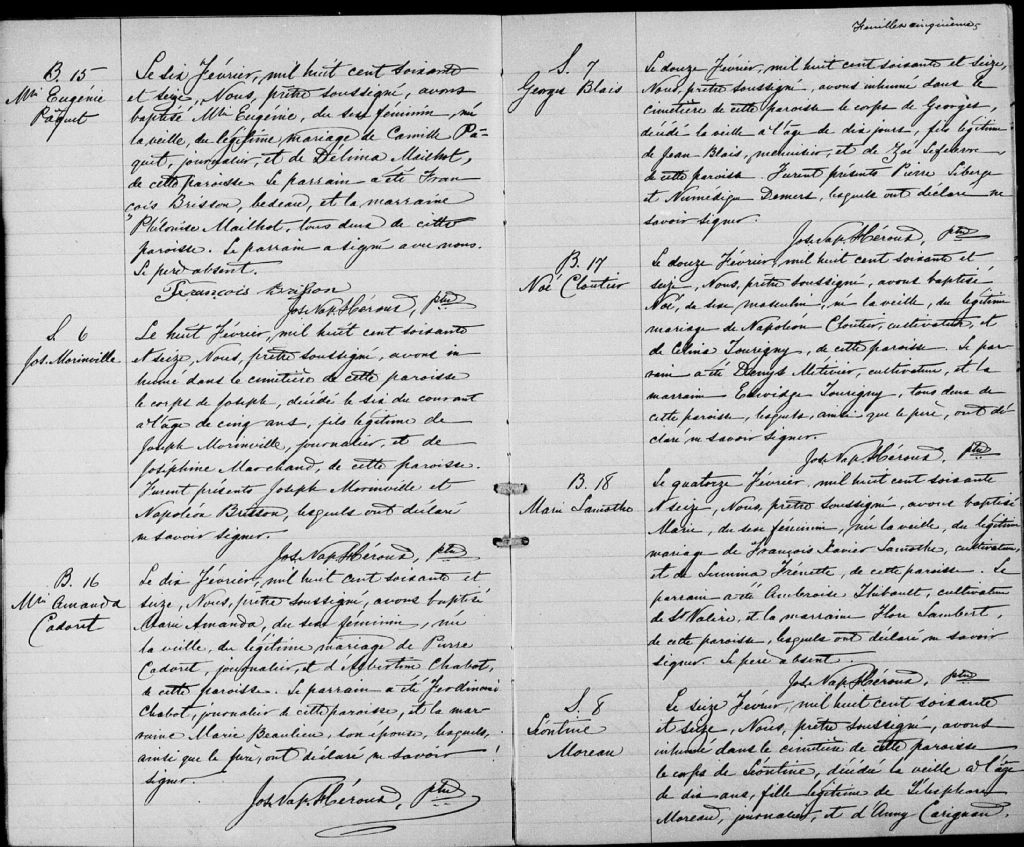 B. 15
Mie Eugénie
Paquet
Le six Février, mil huit cent soixante
et seize, Nous, prêtre soussigné, avons
baptisé Mie Eugénie, du sexe féminin, né
la veille, du légitime mariage de Camille Pâ-
quet, journalier, et de Délima Mailhot,
de cette paroisse. Le parrain a été Fran
çois Brisson, bedeau, et la marraine
Philonise Mailhot, tous deux de cette
paroisse. Le parrain a signé avec nous.
Le père absent.
François Brisson
Jos. Nap. Héroux, ptre
S. 6
Jos. Morinville
Le huit Février, mil huit cent soixante
et seize, Nous, prêtre soussigné, avons in
humé dans le cimetière de cette paroisse
le corps de Joseph, décédé le six du courant
à l'âge de cinq ans, fils légitime de
Joseph Morinville, journalier, et de
Joséphine Marchand, de cette paroisse.
Furent présents Joseph Morinville et
Napoléon Brisson, lesquels ont déclaré
ne savoir signer.
Jos. Nap. Héroux, ptre
B. 16
Mie Amanda
Cadoret
Le dix Février, mil huit cent soixante et
seize, Nous, prêtre soussigné, avons baptisé
Marie Amanda, du sexe féminin, née
la veille, du légitime mariage de Pierre
Cadoret, journalier, et d'Albertine Chabot,
de cette paroisse. Le parrain a été Ferdinand
Chabot, journalier de cette paroisse, et la mar-
raine Marie Beaulieu, son épouse, lesquels,
ainsi que le père, ont déclaré ne savoir
signer.
Jos. Nap. Héroux, ptre
Feuillet cinquième
S. 7
Georges Blais
Le douze Février, mil huit cent soixante et seize,
Nous, prêtre soussigné, avons inhumé dans le
cimetière de cette paroisse le corps de Georges,
décédé la veille à l'âge de dix jours, fils légitime
de Jean Blais, menuisier, et de Zoé Lefebvre
de cette paroisse. Furent présents Pierre Liberge
et Numédique Demers, lesquels ont déclaré ne
savoir signer.
Jos. Nap. Héroux, ptre
B. 17
Noé Cloutier
Le douze Février, mil huit cent soixante et
seize, Nous, prêtre soussigné, avons baptisé
Noé, de sexe masculin, né la veille, du légitime
mariage de Napoléon Cloutier, cultivateur, et
de Célina Tourigny, de cette paroisse. Le par-
rain a été Denys Métivier, cultivateur, et la
marraine Edwidge Tourigny, tous deux de
cette paroisse, lesquels, ainsi que le père, ont dé
claré ne savoir signer.
Jos. Nap. Héroux, ptre
B. 18
Marie Lamothe
Le quatorze Février, mil huit cent soixante
et seize, Nous, prêtre soussigné, avons baptisé
Marie, du sexe féminin, née la veille, du légitime
mariage de François Xavier Lamothe, cultivateur,
et de Lumina Frénette, de cette paroisse. Le
parrain a été Ambroise Thibault, cultivateur
de St Valère, et la marraine Flore Lambert,
de cette paroisse, lesquels ont déclaré ne savoir
signer. Le père absent.
Jos. Nap. Héroux, ptre
S. 8
Léontine
Moreau
Le seize Février, mil huit cent soixante
et seize, Nous, prêtre soussigné, avons
inhumé dans le cimetière de cette paroisse
le corps de Léontine, décédée la veille à l'âge
de dix ans, fille légitime de Télesphore
Moreau, journalier, et d'Anny Carignan.